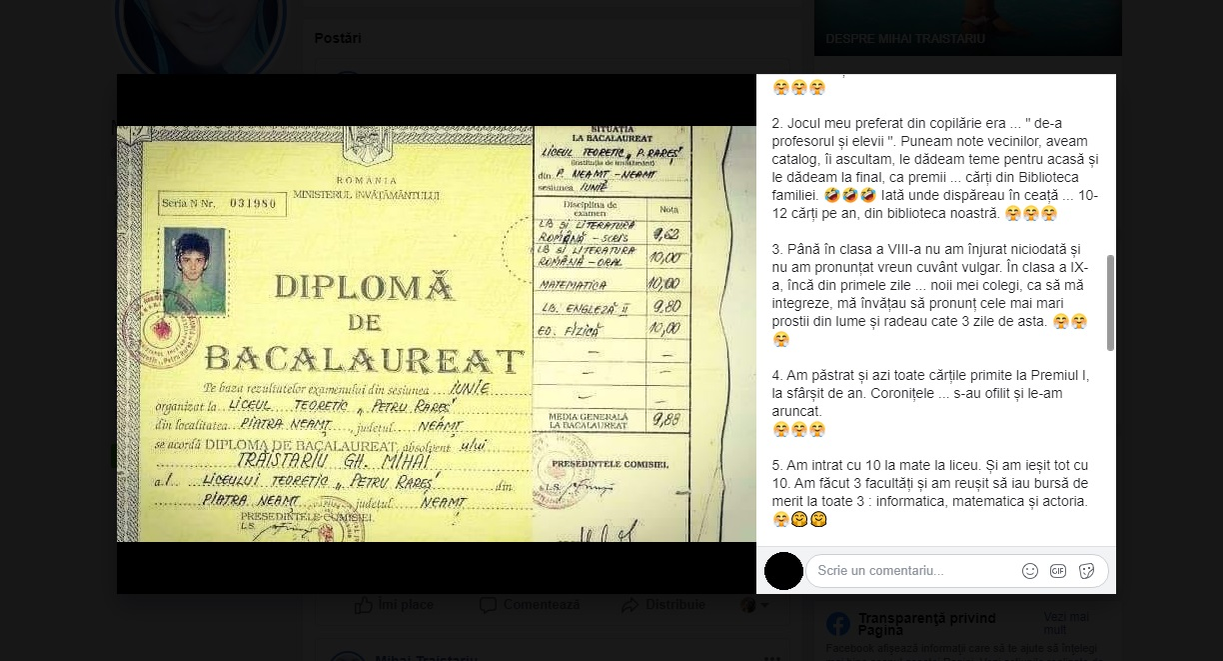 Postări
DESPRE MIHAI TRAISTARIU
ROMÂNIA
MINISTERUL ÎNVĂŢĂMÂNTULUI
Seria N Nr. 031980
DIPLOMĂ
DE
BACALAUREAT
Pe baza rezultatelor examenului din sesiunea IUNIE
organizat la LICEUL TEORETIC „ PETRU RAREȘ"
din localitatea PIATRA NEAMȚ, județul NEAMȚ
se acordă DIPLOMA DE BACALAUREAT, absolvent ului
TRAISTARIU GH. MIHAI
a.l. LICEULUI TEORETIC „ PETRU RAREȘ" din
PIATRA NEAMȚ județul NEAMȚ
PREȘEDINTELE COMISIEI,
L.S.
SITUAȚIA
LA BACALAUREAT
LICEUL TEORETIC „ P. RAREȘ"
din P. NEAMȚ - NEAMȚ
sesiunea IUNIE
Disciplina de examen Nota
LB SI LITERATURA ROMÂNĂ - SCRIS 9,62
LB SI LITERATURA ROMÂNĂ - ORAL 10,00
MATEMATICA 10,00
LB. ENGLEZĂ II 9,80
ED. FIZICĂ 10,00
MEDIA GENERALĂ LA BACALAUREAT 9,88
PREȘEDINTELE COMISIEI,
L.S.
🤗🤗🤗
2. Jocul meu preferat din copilărie era ... " de-a
profesorul și elevii ". Puneam note vecinilor, aveam
catalog, îi ascultam, le dădeam teme pentru acasă și
le dădeam la final, ca premii ... cărți din Biblioteca
familiei. 🤣🤣🤣 Iată unde dispăreau în ceață ... 10-
12 cărți pe an, din biblioteca noastră. 🤗🤗🤗
3. Până în clasa a VIII-a nu am înjurat niciodată și
nu am pronunțat vreun cuvânt vulgar. În clasa a IX-
a, încă din primele zile ... noii mei colegi, ca să mă
integreze, mă învățau să pronunț cele mai mari
prostii din lume și radeau cate 3 zile de asta. 🤗🤗
🤗
4. Am păstrat și azi toate cărțile primite la Premiul I,
la sfârșit de an. Coronițele ... s-au ofilit și le-am
aruncat.
🤗🤗🤗
5. Am intrat cu 10 la mate la liceu. Și am ieșit tot cu
10. Am făcut 3 facultăți și am reușit să iau bursă de
merit la toate 3 : informatica, matematica și actoria.
🤗🤗🤗
Scrie un comentariu...
GIF
Îmi place
Comentează
Distribuie
Transparență privind
Pagina
Vezi mai
mult
Facebook afișează informații care să te ajute să înțelegi
Mihai Traistariu